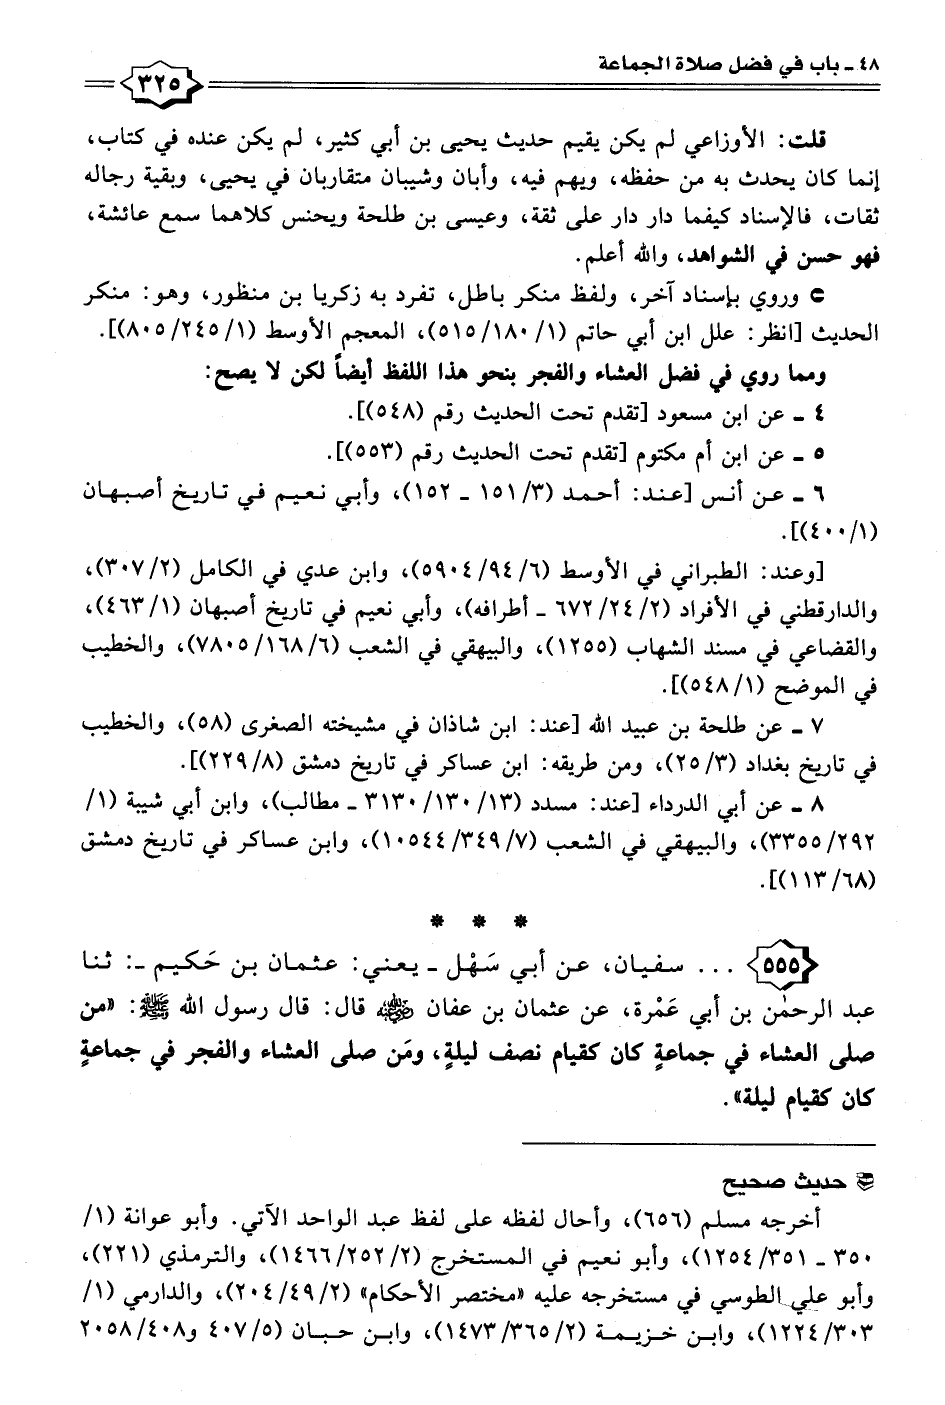 ٤٨ ـ باب في فضل صلاة الجماعة
٣٢٥
قلت: الأوزاعي لم يكن يقيم حديث يحيى بن أبي كثير، لم يكن عنده في كتاب،
إنما كان يحدث به من حفظه، ويهم فيه، وأبان وشيبان متقاربان في يحيى، وبقية رجاله
ثقات، فالإسناد كيفما دار دار على ثقة، وعيسى بن طلحة ويحنس كلاهما سمع عائشة،
فهو حسن في الشواهد، والله أعلم.
وروي بإسناد آخر، ولفظ منكر باطل، تفرد به زكريا بن منظور، وهو: منكر
الحديث [انظر: علل ابن أبي حاتم (١/ ١٨٠/ ٥١٥)، المعجم الأوسط (١/ ٢٤٥/ ٨٠٥)].
ومما روي في فضل العشاء والفجر بنحو هذا اللفظ أيضاً لكن لا يصح:
٤ ـ عن ابن مسعود [تقدم تحت الحديث رقم (٥٤٨)].
٥ ـ عن ابن أم مكتوم [تقدم تحت الحديث رقم (٥٥٣)].
٦ ـ عن أنس [عند: أحمد (٣/ ١٥١ ـ ١٥٢)، وأبي نعيم في تاريخ أصبهان
(١/ ٤٠٠)].
[وعند: الطبراني في الأوسط (٦/ ٩٤/ ٥٩٠٤)، وابن عدي في الكامل (٢/ ٣٠٧)،
والدارقطني في الأفراد (٢/ ٢٤/ ٦٧٢ ـ أطرافه)، وأبي نعيم في تاريخ أصبهان (١/ ٤٦٣)،
والقضاعي في مسند الشهاب (١٢٥٥)، والبيهقي في الشعب (٦/ ١٦٨/ ٧٨٠٥)، والخطيب
في الموضح (١/ ٥٤٨)].
٧ ـ عن طلحة بن عبيد الله [عند: ابن شاذان في مشيخته الصغرى (٥٨)، والخطيب
في تاريخ بغداد (٣/ ٢٥)، ومن طريقه: ابن عساكر في تاريخ دمشق (٨/ ٢٢٩)].
٨ ـ عن أبي الدرداء [عند: مسدد (١٣/ ١٣٠/ ٣١٣٠ ـ مطالب)، وابن أبي شيبة (١/
٢٩٢/ ٣٣٥٥)، والبيهقي في الشعب (٧/ ٣٤٩/ ١٠٥٤٤)، وابن عساكر في تاريخ دمشق
(٦٨/ ١١٣)].
* * *
٥٥٥ ... سفيان، عن أبي سَهْل ـ يعني: عثمان بن حَكيم ـ: ثنا
عبد الرحمٰن بن أبي عَمْرة، عن عثمان بن عفان رضي الله عنه قال: قال رسول الله ﷺ: «من
صلى العشاء في جماعةٍ كان كقيام نصف ليلةٍ، ومَن صلى العشاء والفجر في جماعةٍ
كان كقيام ليلة».
حديث صحيح
أخرجه مسلم (٦٥٦)، وأحال لفظه على لفظ عبد الواحد الآتي. وأبو عوانة (١/
٣٥٠ ـ ٣٥١/ ١٢٥٤)، وأبو نعيم في المستخرج (٢/ ٢٥٢/ ١٤٦٦)، والترمذي (٢٢١)،
وأبو علي الطوسي في مستخرجه عليه «مختصر الأحكام» (٢/ ٤٩/ ٢٠٤)، والدارمي (١/
٣٠٣/ ١٢٢٤)، وابن خزيمة (٢/ ٣٦٥/ ١٤٧٣)، وابن حبان (٥/ ٤٠٧ و٤٠٨/ ٢٠٥٨